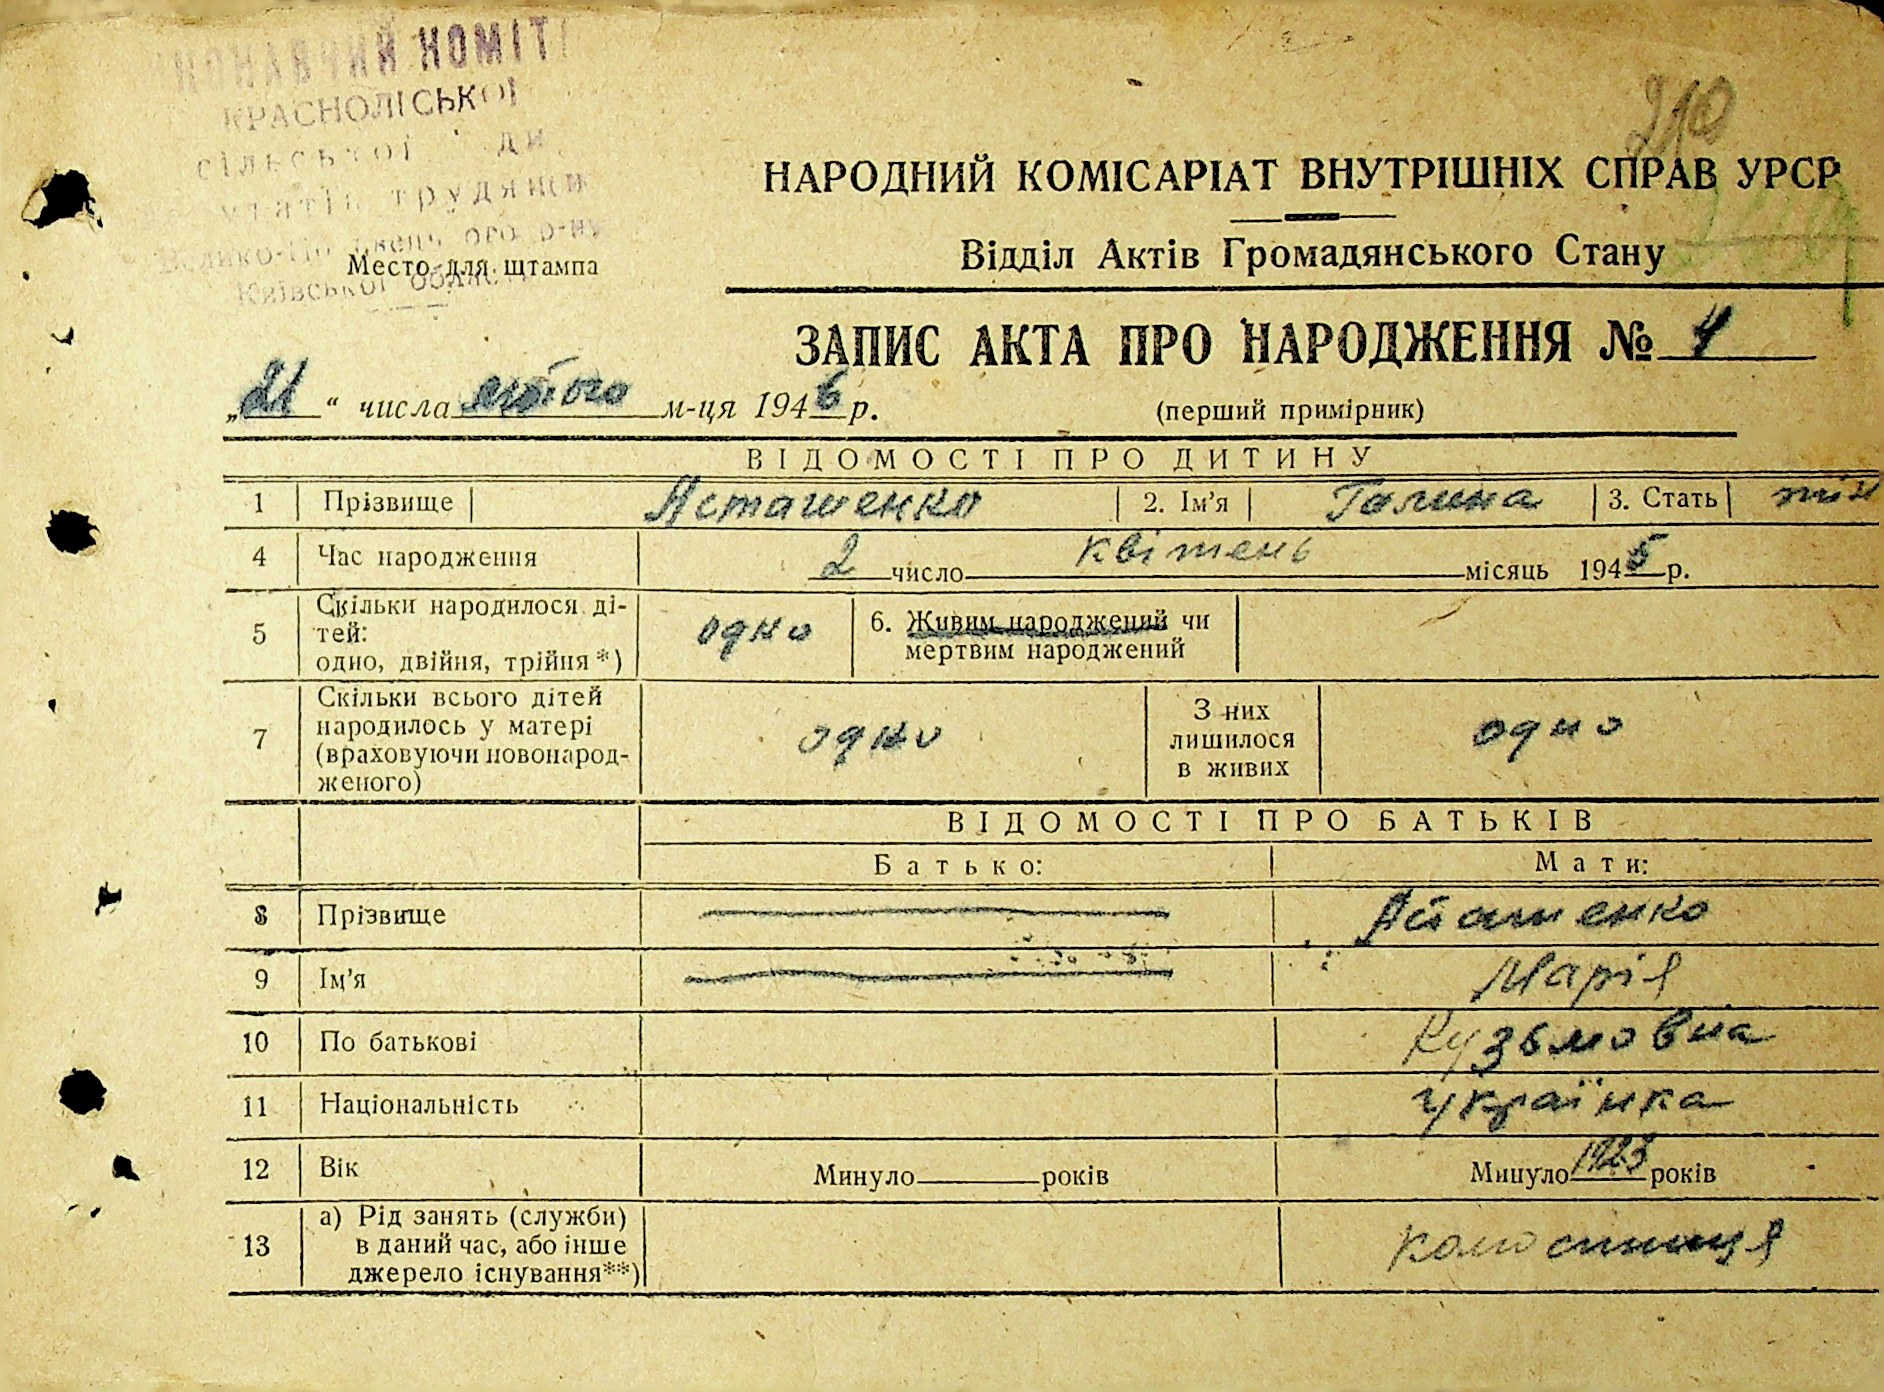 КРАСНОЛІСЬКОЇ
сільської
Київської
Место для штампа
210
НАРОДНИЙ КОМІСАРІАТ ВНУТРІШНІХ СПРАВ УРСР
Відділ Актів Громадянського Стану
ЗАПИС АКТА ПРО НАРОДЖЕННЯ № 4
„21“ числа лютого м-ця 1946 р.
(перший примірник)
ВІДОМОСТІ ПРО ДИТИНУ
1 Прізвище Асташенко 2. Ім'я Галина 3. Стать
4 Час народження 2 число квітень місяць 1945 р.
5 Скільки народилося ді-
тей:
одно, двійня, трійня*)
одно
6. Живим народжений чи
мертвим народжений
7 Скільки всього дітей
народилось у матері
(враховуючи новонарод-
женого)
одно
З них
лишилося
в живих
одно
ВІДОМОСТІ ПРО БАТЬКІВ
Батько: Мати:
8 Прізвище Асташенко
9 Ім'я Марія
10 По батькові Кузьмовна
11 Національність українка
12 Вік Минуло років Минуло 1923 років
13 а) Рід занять (служби)
в даний час, або інше
джерело існування**)